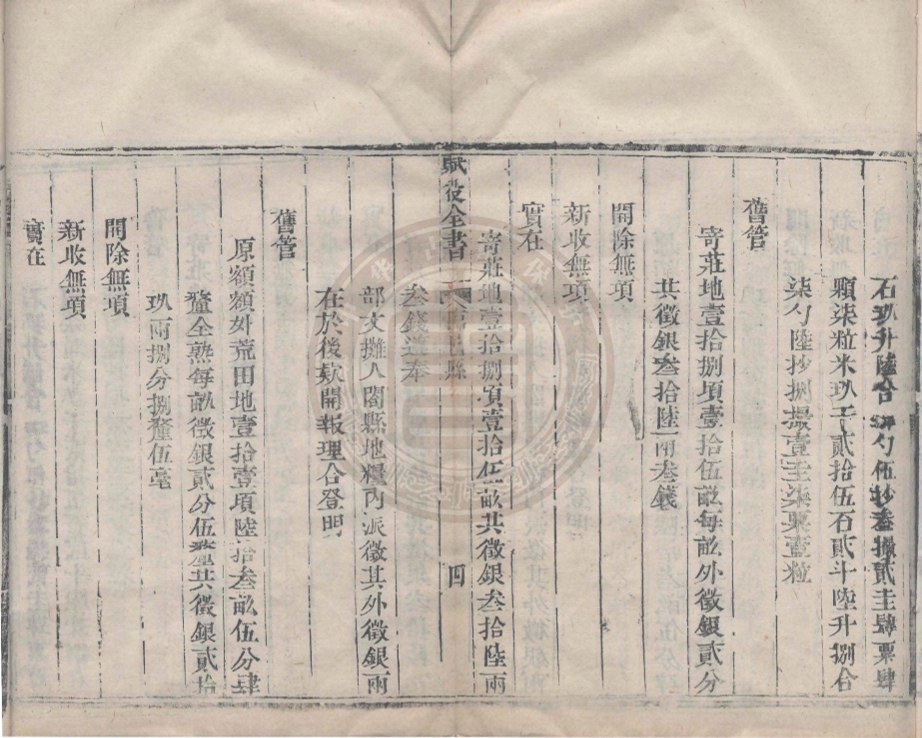 石玖升陸合 勺伍抄叁撮貳圭肆粟肆
顆柒粒米玖千貳拾伍石貳斗陸升捌合
柒勺陸抄捌撮壹圭柒粟壹粒
舊管
寄莊地壹拾捌頃壹拾伍畝每畝外徵銀貳分
共徵銀叁拾陸兩叁錢
開除無項
新收無項
實在
寄莊地壹拾捌頃壹拾伍畝共徵銀叁拾陸兩
賦役全書 縣 四
叁錢遵奉
部文攤入闔縣地糧內派徵其外徵銀兩
在於後欵開報理合登明
舊管
原額額外荒田地壹拾壹頃陸拾叁畝伍分肆
釐全熟每畝徵銀貳分伍釐共徵銀貳拾
玖兩捌分捌釐伍毫
開除無項
新收無項
實在